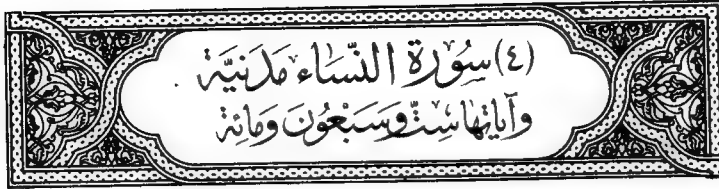 (٤) سُورَة النِّسَاء مَدَنيَّة
وَآيَاتُهَا سِتٌّ وَسَبْعُونَ وَمَائة